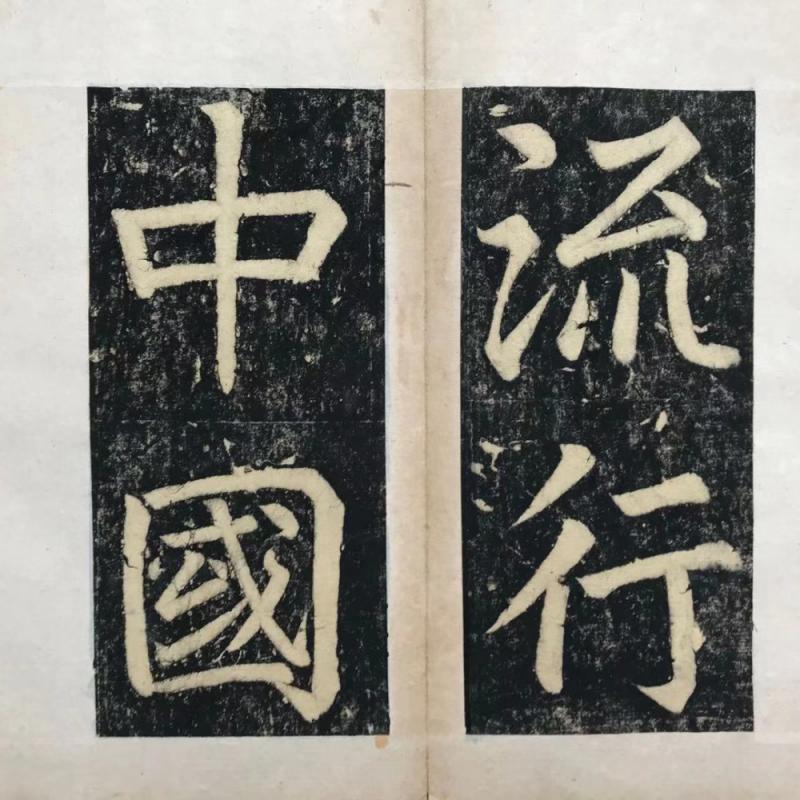 流行
中國